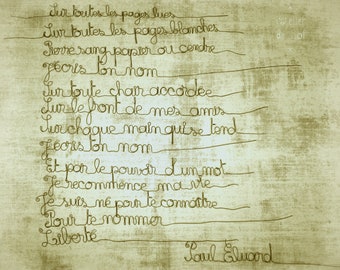 Sur toutes les pages lues
Sur toutes les pages blanches
Pierre sang papier ou cendre
J'écris ton nom
Sur toute chair accordée
Sur le front de mes amis
Sur chaque main qui se tend
J'écris ton nom
Et par le pouvoir d'un mot
Je recommence ma vie
Je suis né pour te connaître
Pour te nommer
Liberté
Paul Eluard